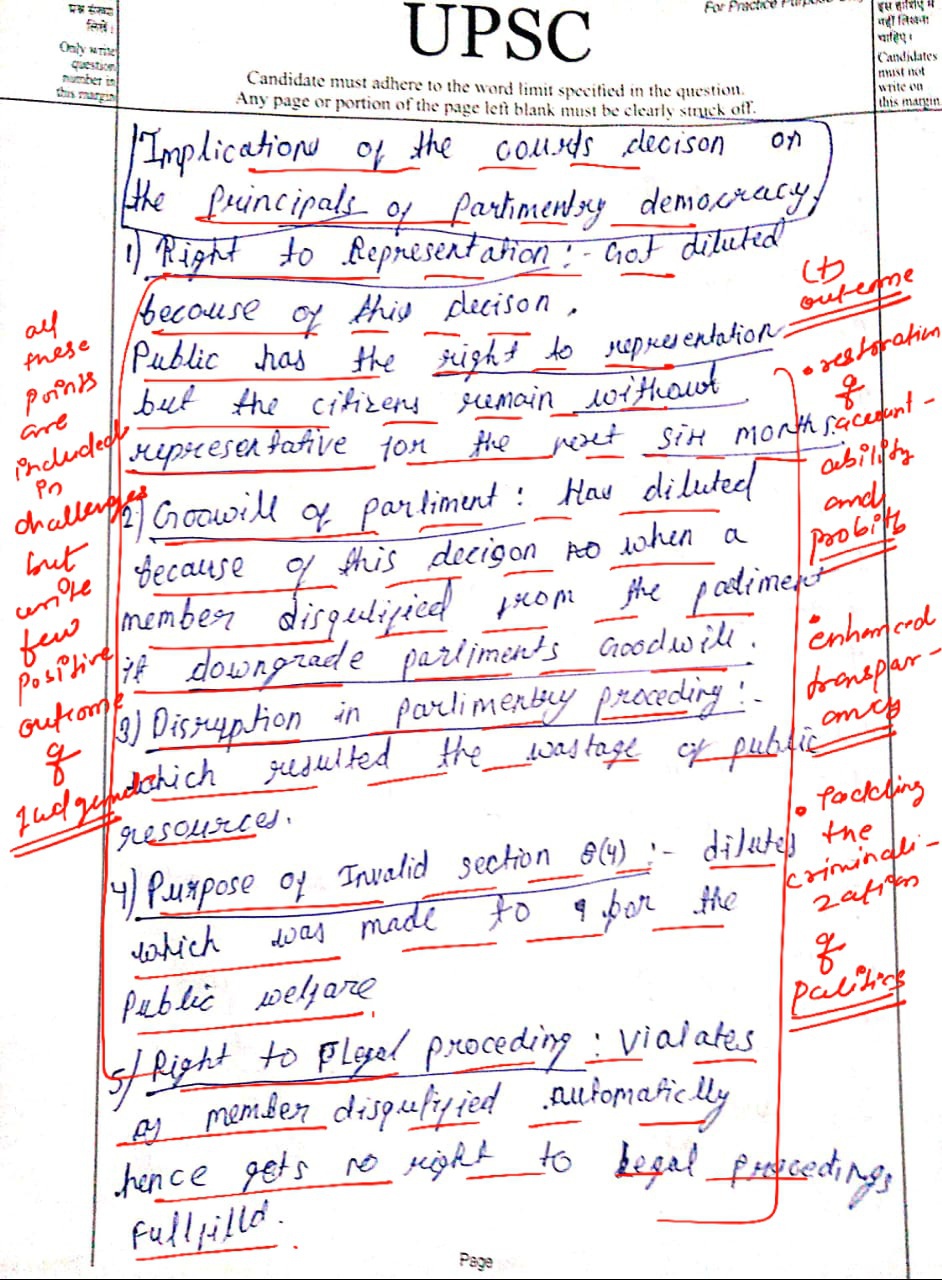 प्रश्न संख्या
लिखें।
Only write
question
number in
this margin
For Practice Purpose
UPSC
Candidate must adhere to the word limit specified in the question.
Any page or portion of the page left blank must be clearly struck off.
इस हाशिए में
नहीं लिखना
चाहिए।
Candidates
must not
write on
this margin
Implications of the courts decison on
the principals of partimentry democracy
1) Right to Representation :- Got diluted
because of this decison.
Public has the right to representation
but the citizens remain without
representative for the next six months.
2) Goowill of parliment : Has diluted
because of this decison so when a
member disqulified from the parliment
it downgrade parliments Goodwill.
3) Disruption in parlimentry proceding :-
which resulted the wastage of public
resources.
4) Purpose of Invalid section 8(4) :- dilutes
which was made to for the
Public welfare.
5) Right to Legal proceding : Vialates
as member disqulified automatically
hence gets no right to Legal procedings
Fullfilld.
all
these
points
are
included
in
challenges
but
write
few
positive
outcome
of
Judgement
(+)
outcome
• restoration
of
account-
ability
and
probity
• enhanced
transpar-
ancy
• Tackling
the
criminali-
zation
of
Politics
Page